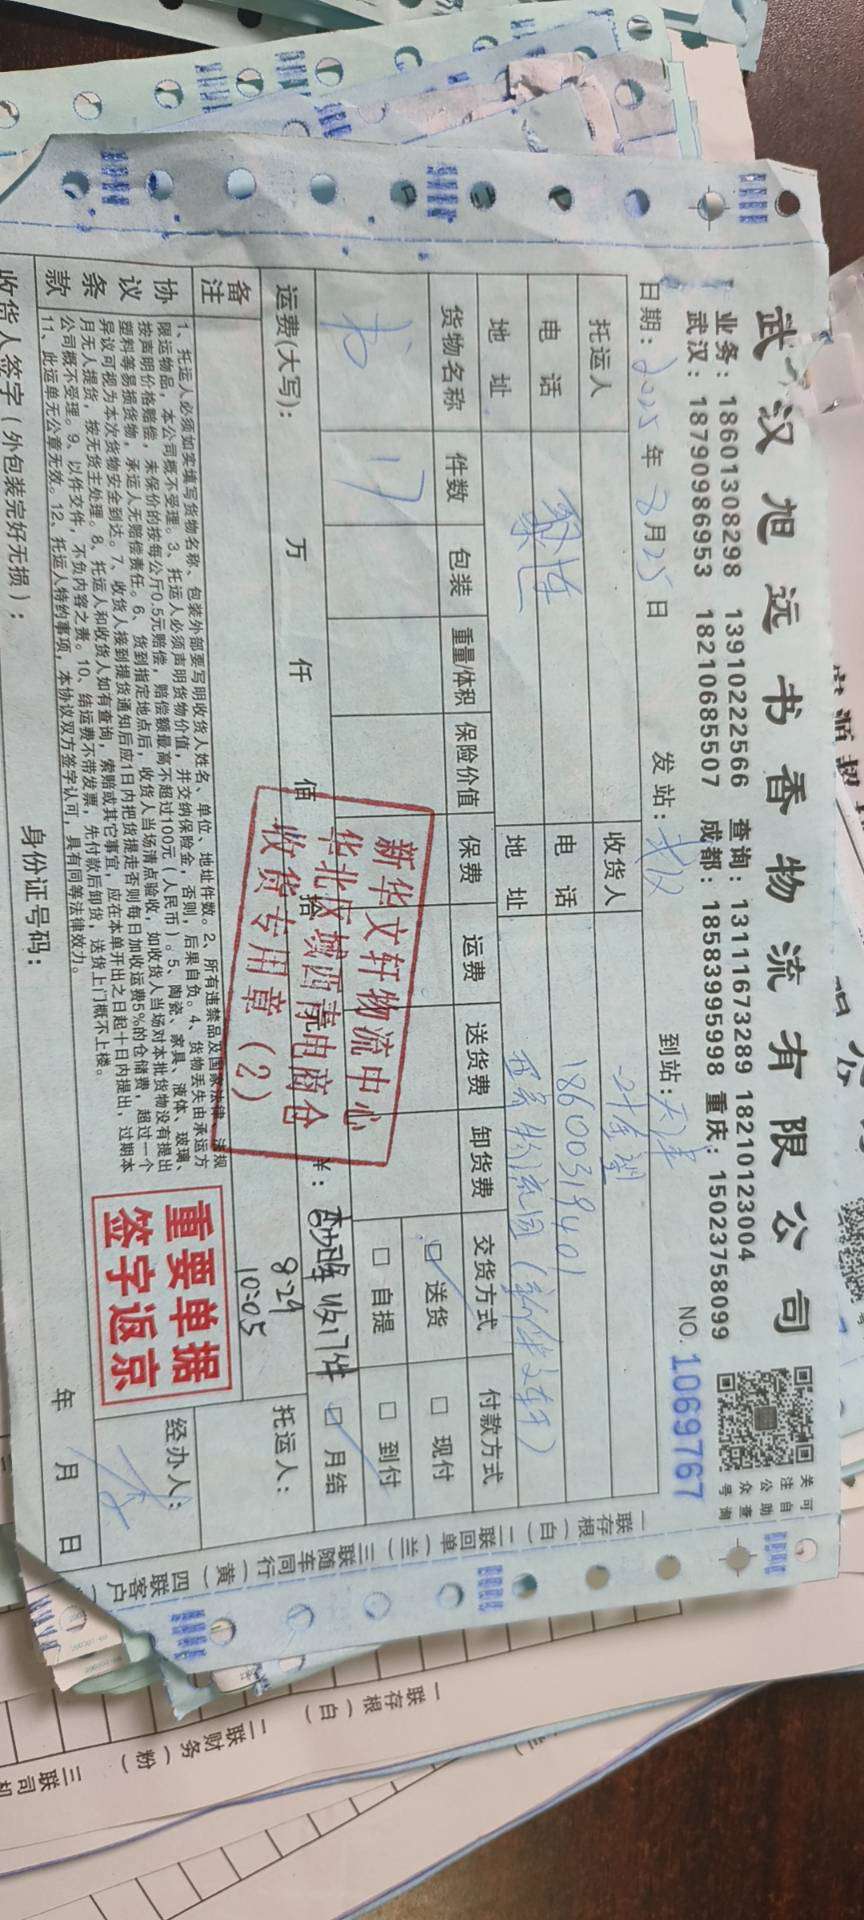 武汉旭远书香物流有限公司
业务：18601308298 13910222566 查询：13111673289 18210123004
武汉：18790986953 18210685507 成都：18583995998 重庆：15023758099
关注公众号
可自助查询
NO. 1069767
日期：2025年8月25日 发站：武汉 到站：天津
托运人 收货人 叶金望
电话 电话 18600319401
地址 地址 西青物流园（新华文轩）
货物名称 件数 包装 重量/体积 保险价值 保费 运费 送货费 卸货费 交货方式 付款方式
书 17 送货 现付
自提 到付
月结
运费(大写)： 万 仟 佰 拾 ¥：
收17件
8.29
10:05
备注
托运人：
协议条款
1、托运人必须如实填写货物名称、包装外部要写明收货人姓名、单位、地址件数。2、所有违禁品及国家法律、违规
限运物品，本公司概不受理。3、托运人必须声明货物价值，并交纳保险金，否则，后果自负。4、货物丢失由承运方
按声明价格赔偿，未保价的按每公斤0.5元赔偿，赔偿额最高不超过100元（人民币）。5、陶瓷、家具、液体、玻璃、
塑料等易损货物，承运人无赔偿责任。6、货到指定地点后，收货人当场清点验收，如收货人当场对本批货物没有提出
异议可视为本次货物安全到达。7、收货人接到提货通知后应1日内把货提走否则每日加收运费5%的仓储费，超过一个
月无人提货，按无货主处理。8、托运人和收货人如有查询，索赔或其它事宜，应在本单开出之日起十日内提出，过期本
公司概不受理。9、以件交件，不负内容之责。10、结运费不带发票，先付款后卸货，送货上门概不上楼。
11、此运单无公章无效。12、托运人特约事项，本协议双方签字认可，具有同等法律效力。
经办人：
收货人签字（外包装完好无损）： 身份证号码： 年 月 日
新华文轩物流中心
华北区域西青电商仓
收货专用章（2）
重要单据
签字返京
一联存根（白）二联回单（兰）三联随车同行（黄）四联客户（
一联存根（白）
二联财务（粉）
三联司机